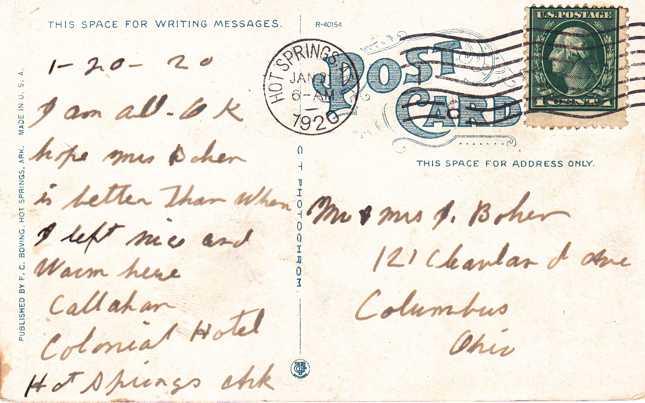 THIS SPACE FOR WRITING MESSAGES.
R-40154
1-20-20
I am all-O K
hope mrs Boher
is better Than When
I left nice and
Warm here
Callahan
Colonial Hotel
Hot Springs Ark
PUBLISHED BY F. C. BOVING, HOT SPRINGS, ARK. MADE IN U. S. A.
C T PHOTOCHROM
HOT SPRINGS
JAN
6-AM
1920
POST CARD
U.S. POSTAGE
1 CENT 1
THIS SPACE FOR ADDRESS ONLY.
Mr & mrs J. Boher
121 Cleavland Ave
Columbus
Ohio